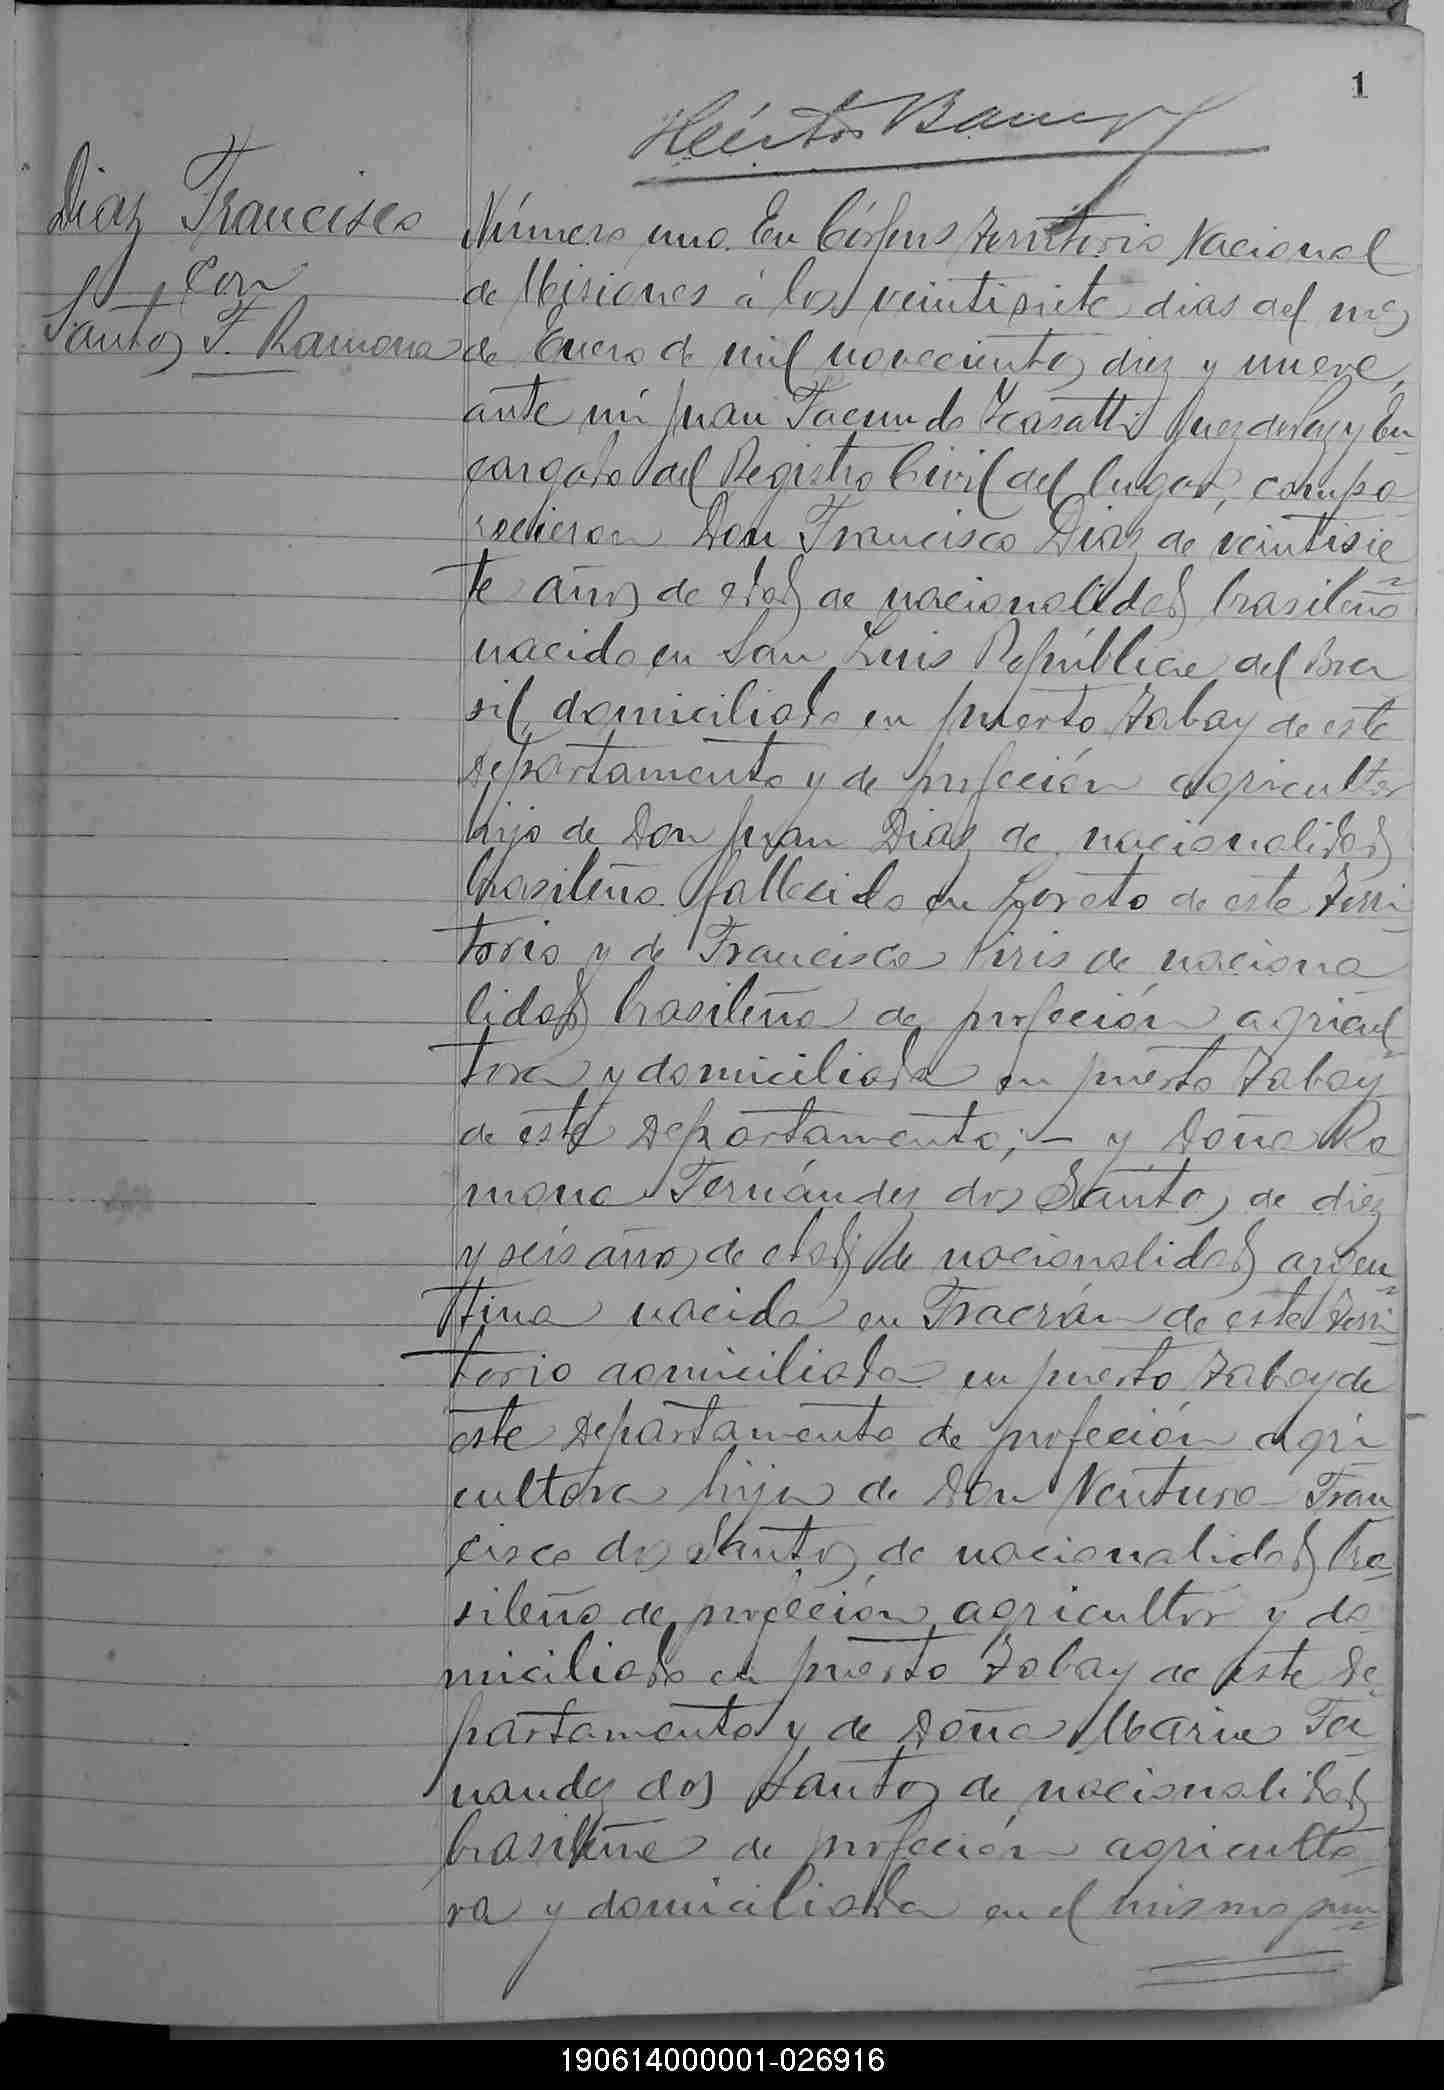 1
Héctor
Diaz Francisco
con
Santos F. Ramona
Número uno. En Córpus Territorio Nacional
de Misiones á los veintisiete dias del mes
de Enero de mil novecientos diez y nueve,
ante mi Juan Facundo Juez de Paz y En-
cargado del Registro Civil del lugar, compa-
recieron Don Francisco Diaz de veintisie-
te años de edad de nacionalidad brasileño
nacido en San Luis República del Bra
sil, domiciliado en puerto Zabay de este
Departamento y de profeción agricultor
hijo de Don Juan Diaz de nacionalidad
brasileño fallecido en Loreto de este Terri-
torio y de Francisca Piris de naciona
lidad brasileña de profeción agricul-
tora y domiciliada en puerto Zabay
de este Departamento; — y Doña Ra-
mona Fernández dos Santos de diez
y seis años de edad de nacionalidad argen-
tina nacida en Fracrán de este Terri-
torio domiciliada en puerto Zabay de
este Departamento de profeción agri
cultora hija de Don Ventura Fran
cisco dos Santos de nacionalidad bra-
sileño de profeción agricultor y do-
miciliado en puerto Zabay de este De-
partamento y de Doña Maria Fer-
nandez dos Santos de nacionalidad
brasileña de profeción agriculto-
ra y domiciliada en el mismo pun-
190614000001-026916